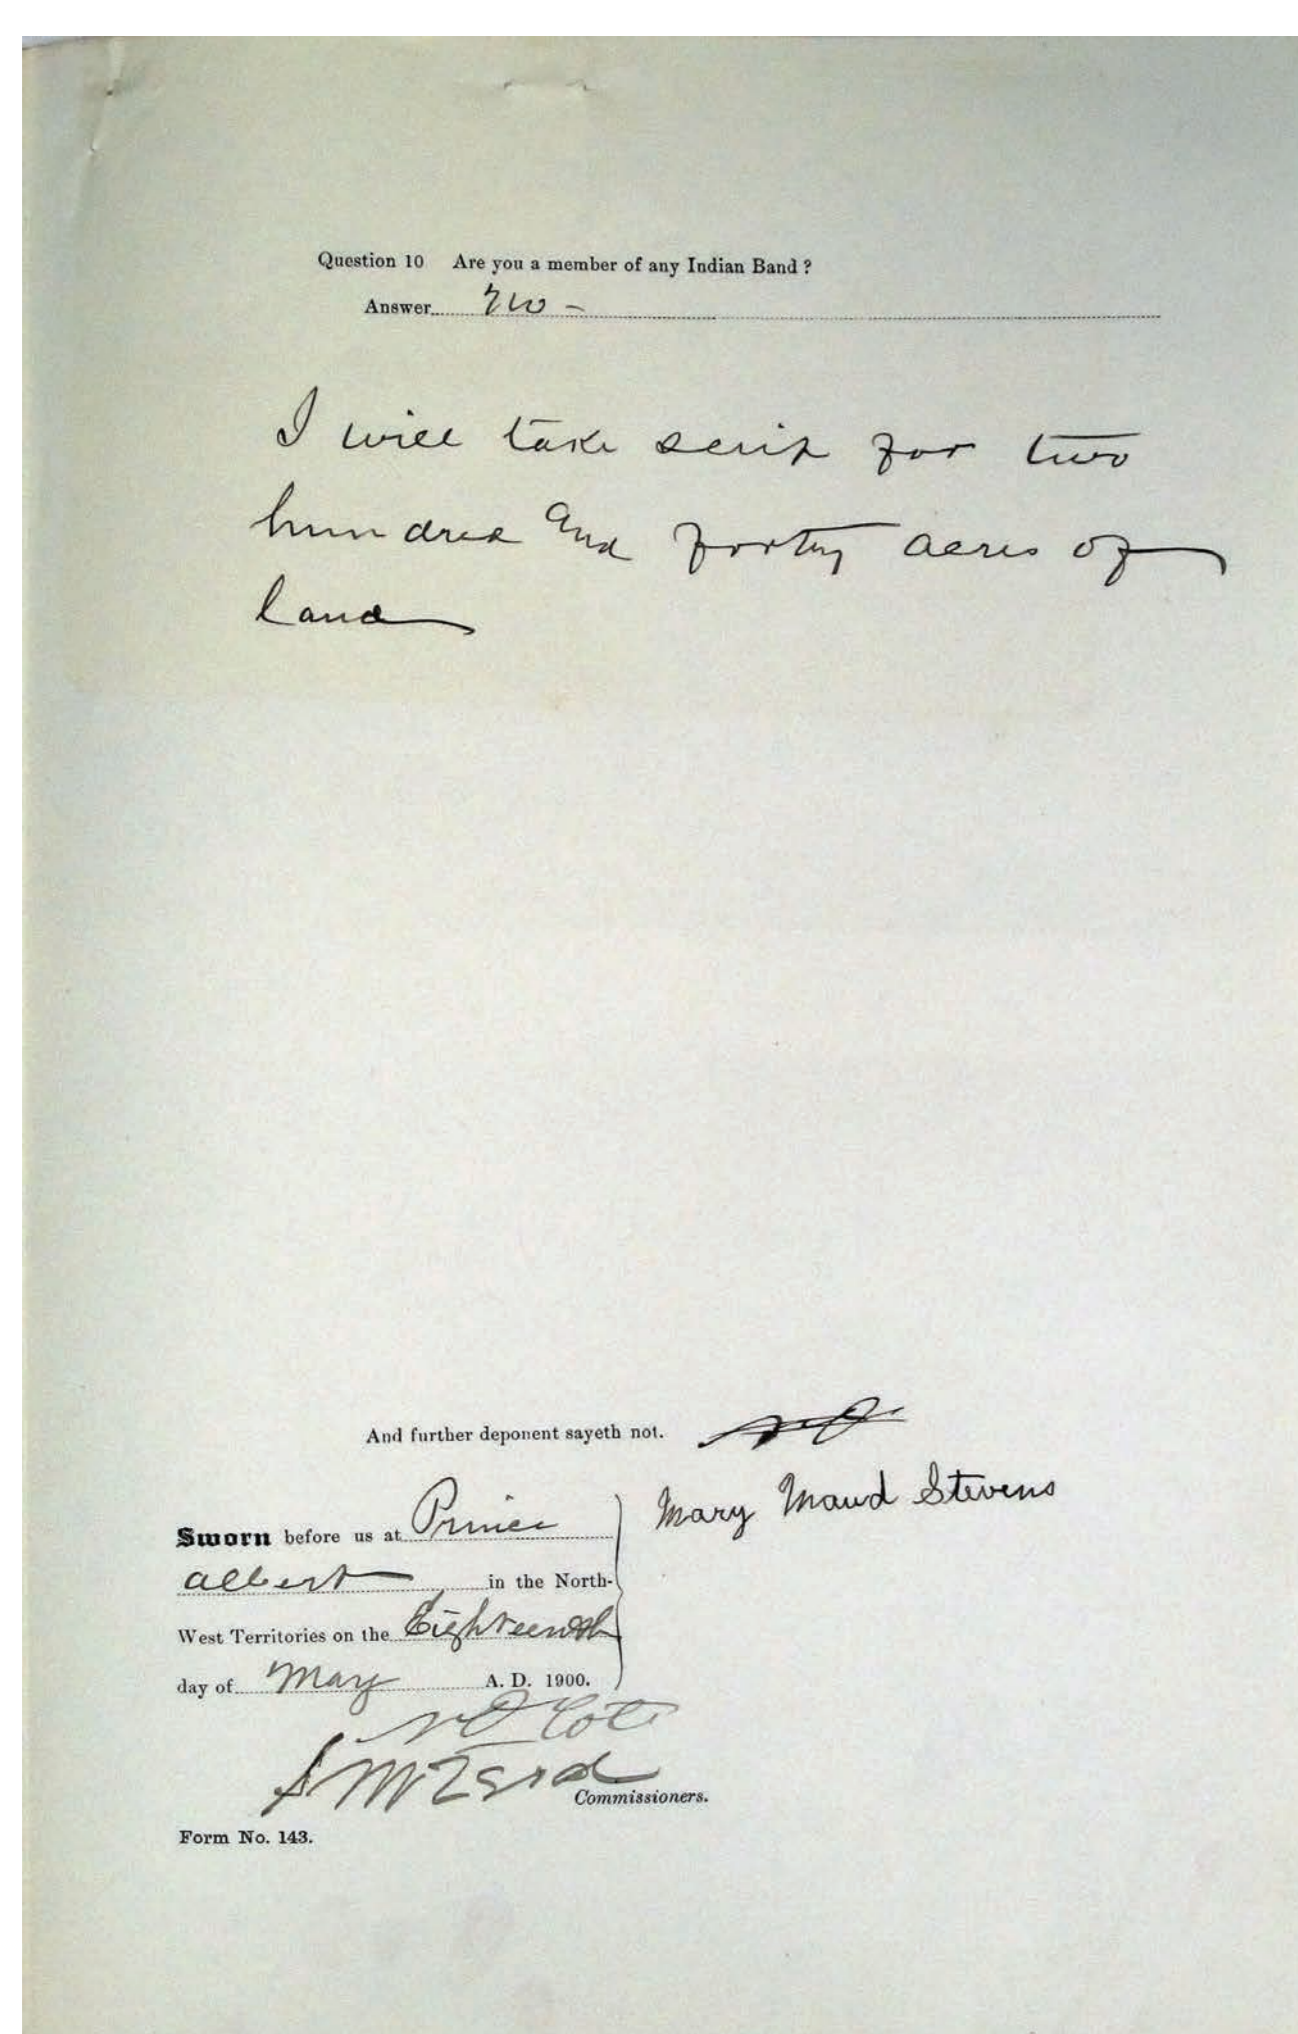 Question 10 Are you a member of any Indian Band ?
Answer No -
I will take scrip for two
hundred and forty acres of
land
And further deponent sayeth not.
Mary Maud Stevens
Sworn before us at Prince
Albert in the North-
West Territories on the Eighteenth
day of May A. D. 1900.
N O Coté
Commissioners.
Form No. 143.